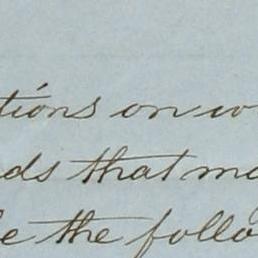 tions on w
ds that m
e the follo